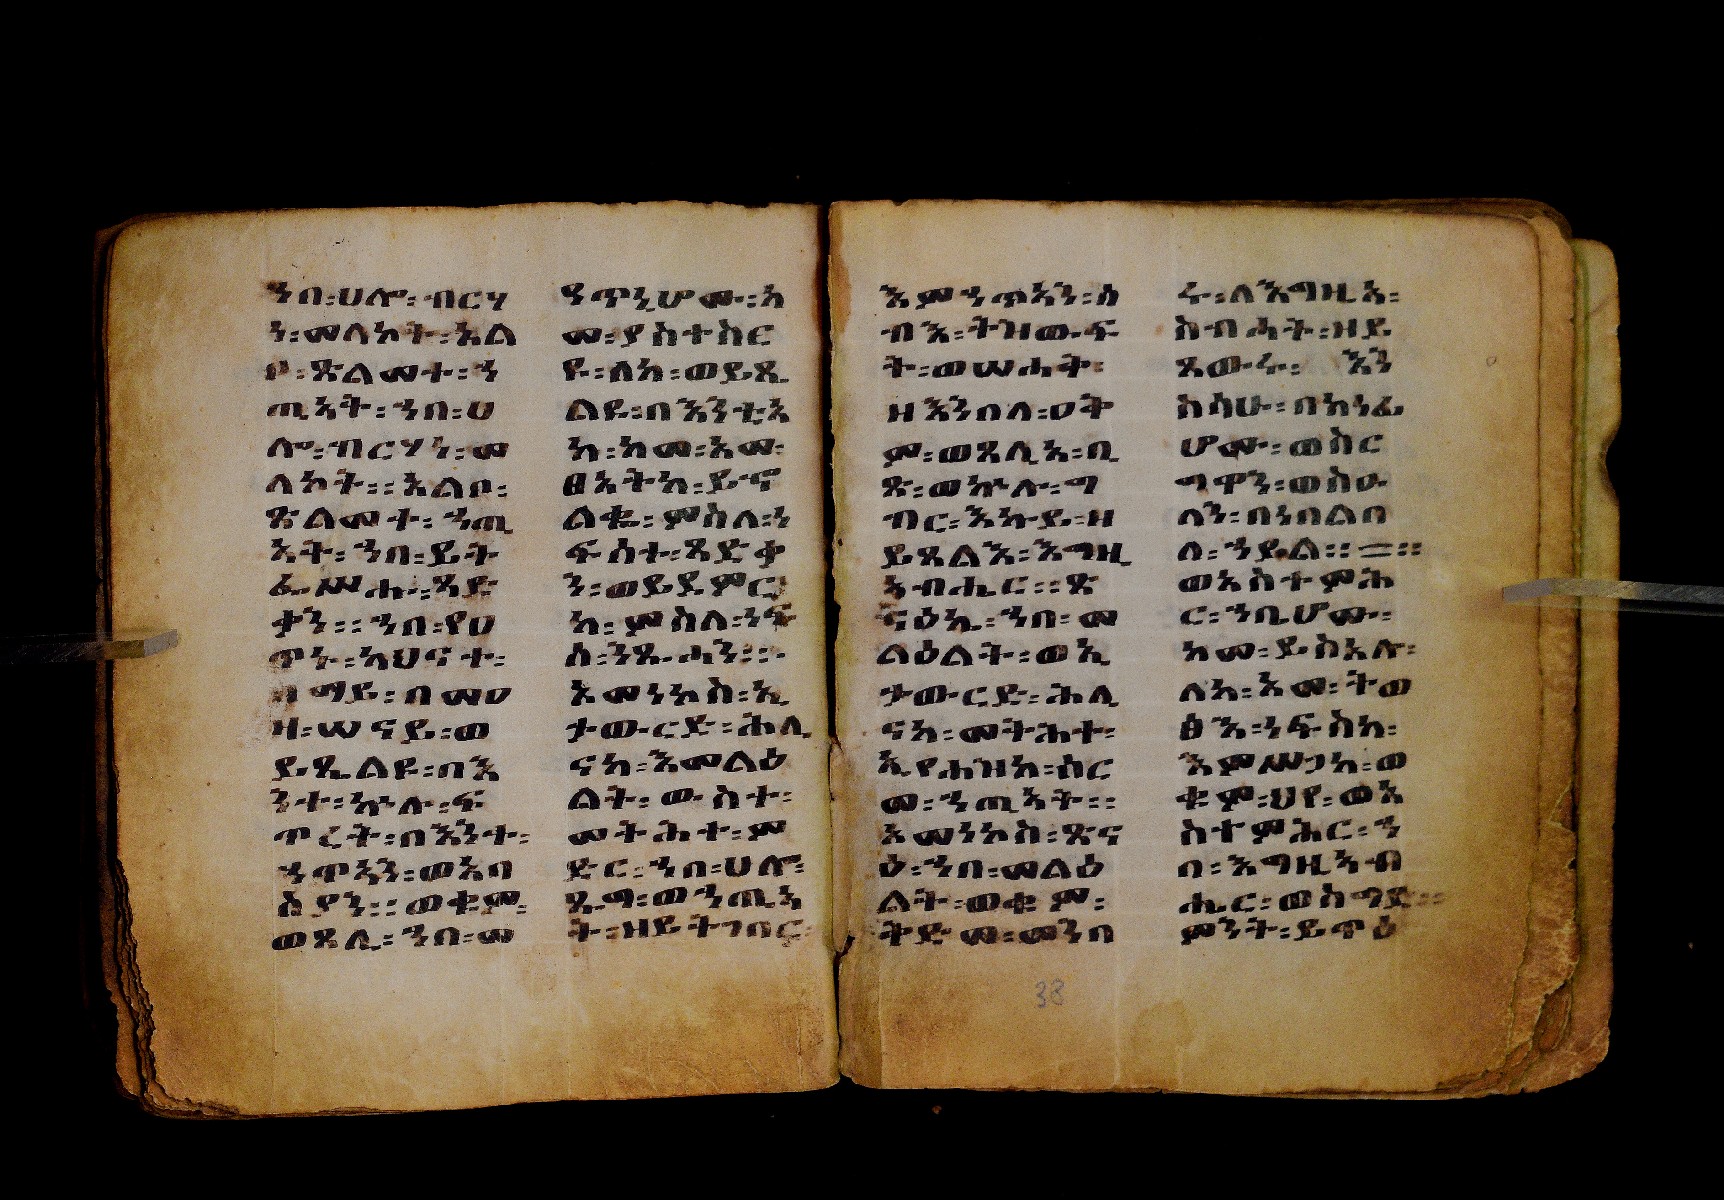 ኀበ፡ሀሎ፡ብርሃ
ን፡መለኮት፡እል
ቦ፡ጽልመተ፡ኀ
ጢአት፡ኀበ፡ሀ
ሎ፡ብርሃነ፡መ
ለኮት፡፡እልቦ፡
ጽልመተ፡ኀጢ
አት፡ኀበ፡ይት
ፌሣሕ፡ጻድ
ቃን፡፡ኀበ፡የሀ
ጥኑ፡ካህናተ፡
ሰማይ፡በመዐ
ዛ፡ሠናይ፡ወ
ይጼልዩ፡በእ
ንተ፡ኵሉ፡ፍ
ጥረት፡በእንተ፡
ኃጥኣን፡ወአበ
ስያን፡፡ወቁም፡
ወጸሊ፡ኀበ፡መ
ዓጥኒሆሙ፡ከ
መ፡ያስተስር
ዩ፡ለከ፡ወይጼ
ልዩ፡በእንቲአ
ከ፡ከመ፡እመ፡
ፀአትከ፡ይኅ
ልቁ፡ምስለ፡ነ
ፍሰተ፡ጻድቃ
ን፡ወይደምር
ከ፡ምስለ፡ነፍ
ሰ፡ንጹሓን፡፡
እመነኮስ፡ኢ
ታውርድ፡ሕሊ
ናከ፡እመልዕ
ልት፡ውስተ፡
መትሕተ፡ም
ድር፡ኀበ፡ሀሎ፡
ጼጋ፡ወኀጢአ
ት፡ዘይትገበር፡
እምኃጥኣን፡ሰ
ብእ፡ትዝውፍ
ት፡ወሠሐት፡
ዘእንበለ፡ዐት
ም፡ወጸሊእ፡ቢ
ጽ፡ወኵሉ፡ግ
ብር፡እኩይ፡ዘ
ይጸልእ፡እግዚ
አብሔር፡፡ጽ
ናዕኬ፡ኀበ፡መ
ልዕልት፡ወኢ
ታውርድ፡ሕሊ
ናከ፡መትሕተ፡
ኢየሐዝከ፡ስር
መ፡ኀጢአት፡፡
እመነኮስ፡ጽና
ዕ፡ኀበ፡መልዕ
ልት፡ወቁም፡
ቅድመ፡መንበ
ሩ፡ለእግዚአ፡
ስብሓት፡ዘይ
ጸውሩ፡ እን
ስሳሁ፡በክነፊ
ሆሙ፡ወስር
ግዋን፡ወስዑ
ላን፡በነበልባ
ለ፡ኀይል፡፡=፡፡
ወአስተምሕ
ር፡ኀቢሆሙ፡
ከመ፡ይስአሉ፡
ለከ፡እመ፡ትወ
ፅእ፡ነፍስከ፡
እምሥጋከ፡ወ
ቁም፡ህየ፡ወአ
ስተምሕር፡ኀ
በ፡እግዚአብ
ሔር፡ወሰማይ፡፡
ምንት፡ይጥዕ